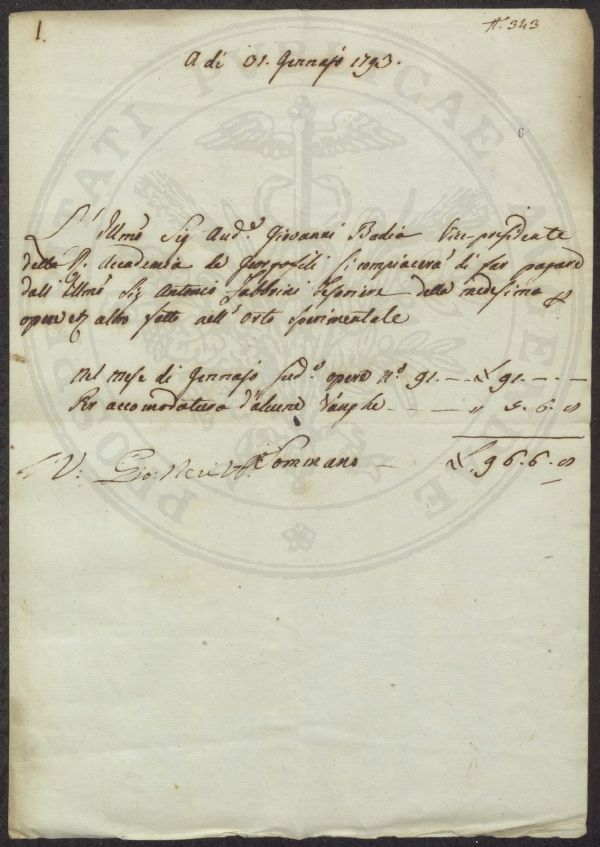 1.
N.° 343
A di 31. Gennajo 1793.
6
L'Illmō Sig. Aud.e Giovanni Badia Vice-presidente
della R. Accademia de Georgofili si compiacerà di far pagare
dall' Illmō Sig. Antonio Fabbrini Tesoriere della medesima p
opere et altro fatto nell' orto sperimentale
Nel mese di Gennajo sud.° opere n.° 91. - - - £ 91. - - -
Per accomodatura d'alcune Vanghe - - - - „ 5. 6. 8
Sommano - £. 96. 6. 8
V: Gio. Neri
PROSPERITATI PUBLICAE AUGENDAE